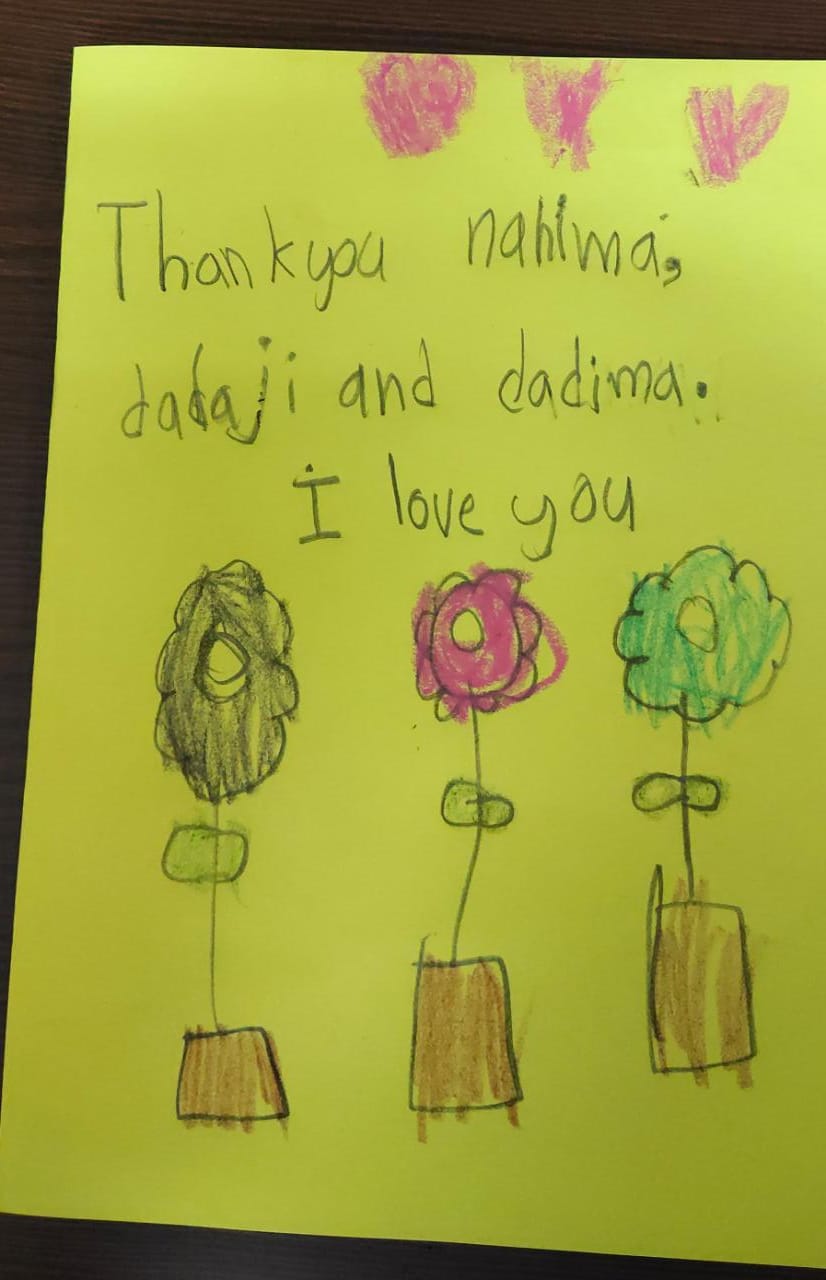 Thankyou nanima,
dadaji and dadima.
I love you